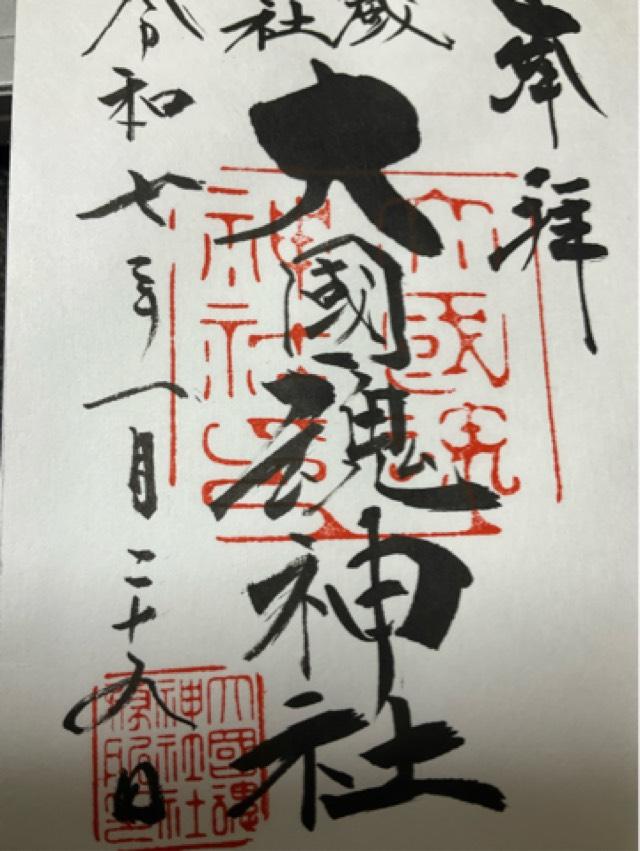 奉拝
蔵
社
大國魂神社
令和七年一月二十 日
大國魂
神社印
大國魂
神社社
務所印